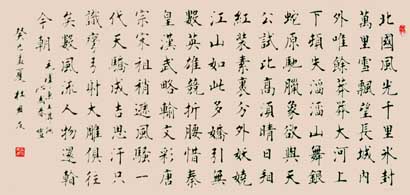 北國風光千里冰封
萬里雪飄望長城內
外唯餘莽莽大河上
下頓失滔滔山舞銀
蛇原馳臘象欲與天
公試比高須晴日看
紅裝素裹分外妖嬈
江山如此多嬌引無
數英雄競折腰惜秦
皇漢武略輸文彩唐
宗宋祖稍遜風騷一
代天驕成吉思汗只
識彎弓射大雕俱往
矣數風流人物還看
今朝
癸巳夏